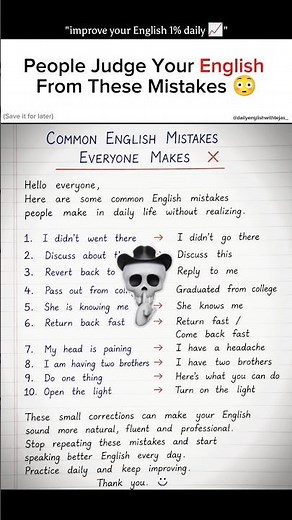 "improve your English 1% daily 📈"
People Judge Your English
From These Mistakes 😳
(Save it for later)
@dailyenglishwithtejas_
COMMON ENGLISH MISTAKES
EVERYONE MAKES ✗
Hello everyone,
Here are some common English mistakes
people make in daily life without realizing.
1. I didn't went there → I didn't go there
2. Discuss about → Discuss this
3. Revert back to → Reply to me
4. Pass out from → Graduated from college
5. She is knowing me → She knows me
6. Return back fast → Return fast /
Come back fast
7. My head is paining → I have a headache
8. I am having two brothers → I have two brothers
9. Do one thing → Here's what you can do
10. Open the light → Turn on the light
These small corrections can make your English
sound more natural, fluent and professional.
Stop repeating these mistakes and start
speaking better English every day.
Practice daily and keep improving.
Thank you. ☺